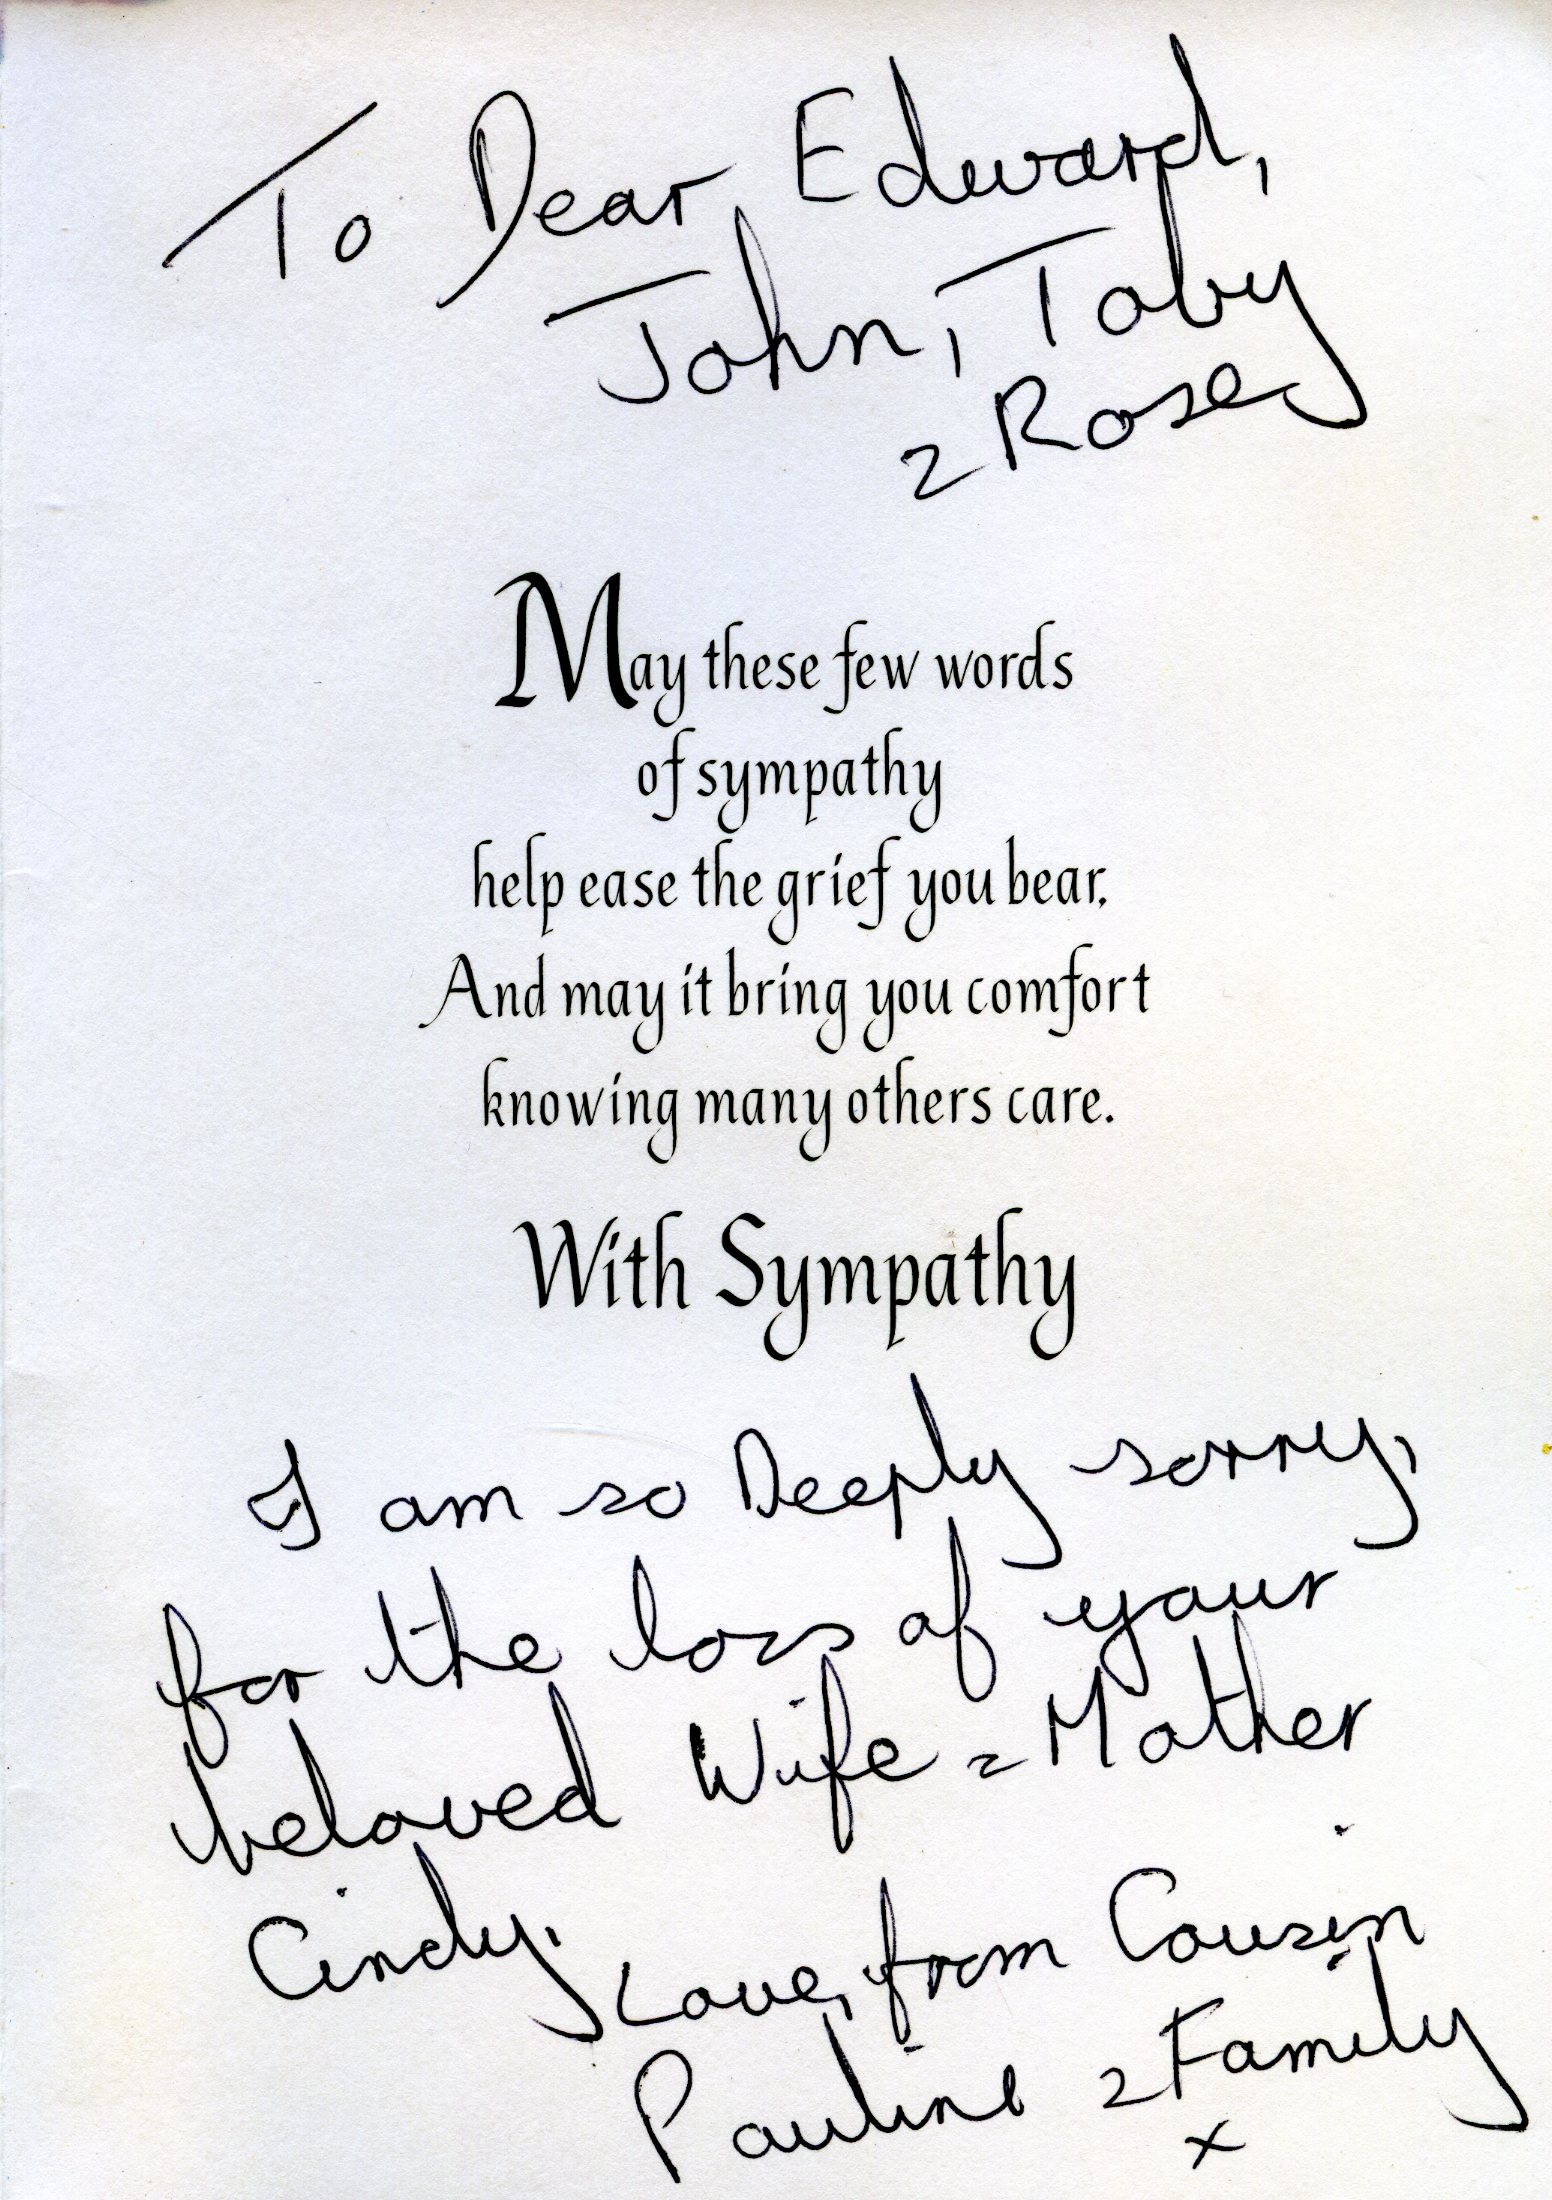 To Dear Edward,
John, Toby
& Rose
May these few words
of sympathy
help ease the grief you bear,
And may it bring you comfort
knowing many others care.
With Sympathy
I am so Deeply sorry,
for the loss of your
beloved Wife & Mother
Cindy,
Love, from Cousin
Pauline & Family
x